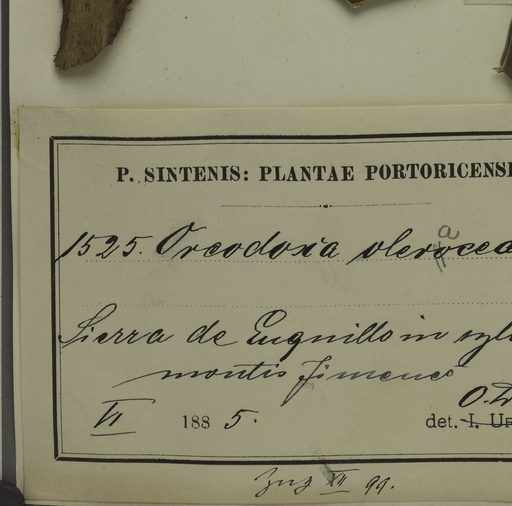 P. SINTENIS: PLANTAE PORTORICENS
1525. Oreodoxia olerocea
a
Sierra de Luquillo in sylv
montis Jimenes
VI 1885.
det. I. U
XII 99.